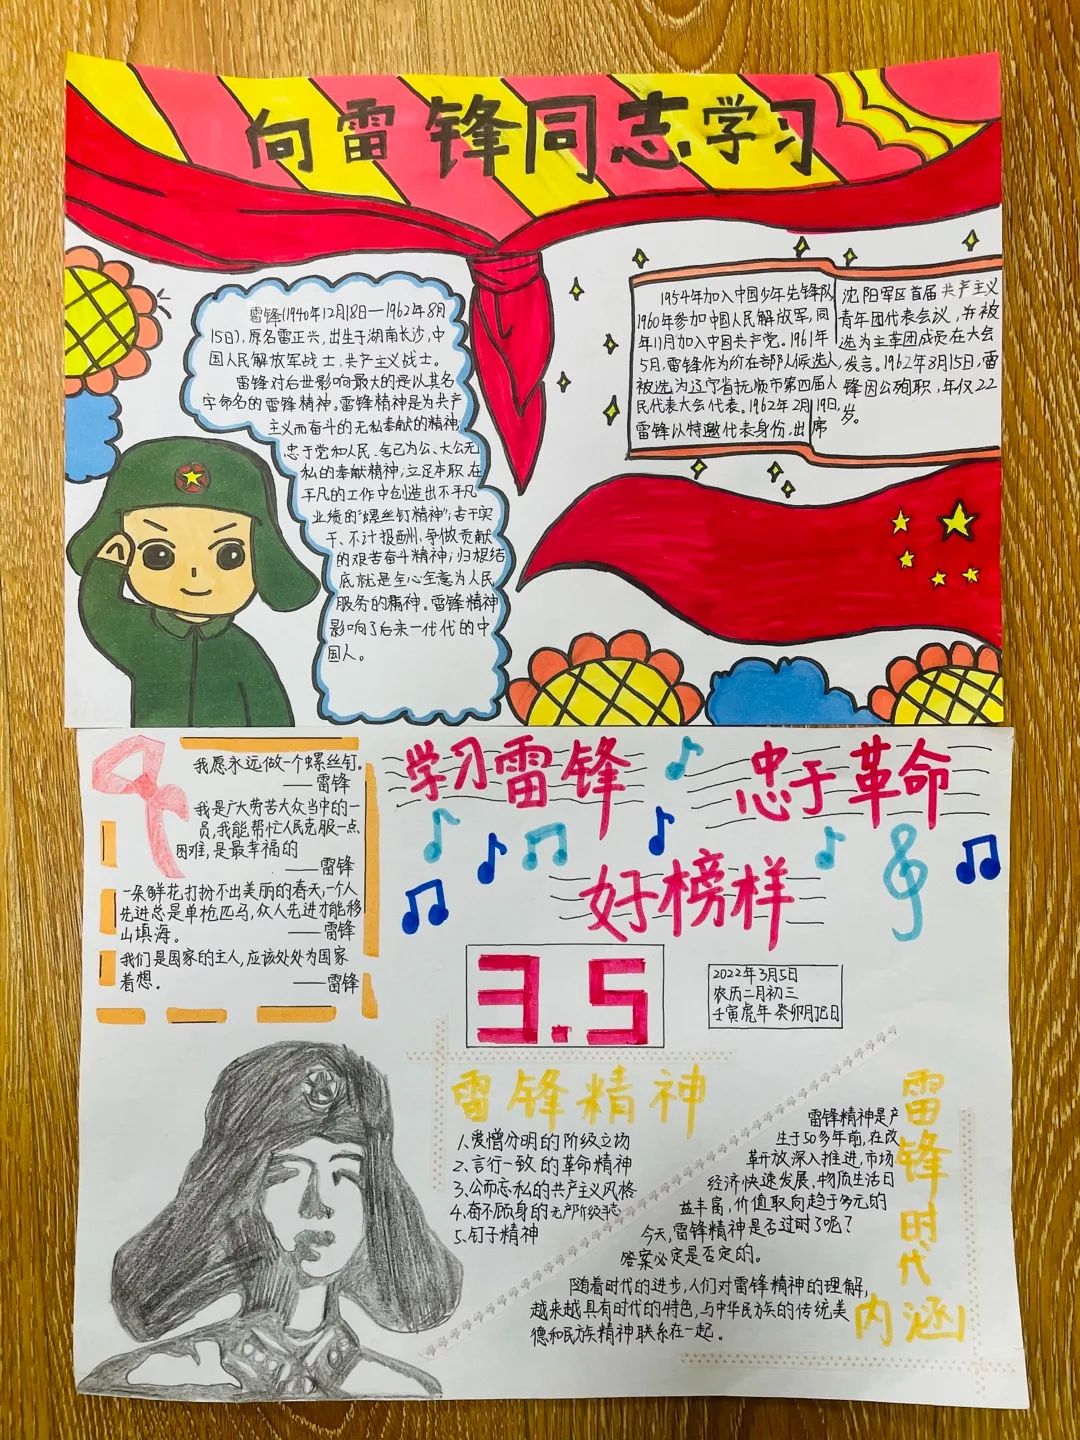 向雷锋同志学习
雷锋(1940年12月18日—1962年8月
15日),原名雷正兴,出生于湖南长沙,中
国人民解放军战士,共产主义战士。
雷锋对后世影响最大的是以其名
字命名的雷锋精神。雷锋精神是为共产
主义而奋斗的无私奉献的精神;
忠于党和人民、舍己为公、大公无
私的奉献精神;立足本职、在
平凡的工作中创造出不平凡
业绩的"螺丝钉精神";苦干实
干、不计报酬、争做贡献
的艰苦奋斗精神;归根结
底就是全心全意为人民
服务的精神。雷锋精神
影响了后来一代代的中
国人。
1954年加入中国少年先锋队
1960年参加中国人民解放军,同
年11月加入中国共产党。1961年
5月,雷锋作为所在部队人候选人,
被选为辽宁省抚顺市第四届人
民代表大会代表。1962年2月19日,
雷锋以特邀代表身份.出席
沈阳军区首届共产主义
青年团代表会议,并被
选为主席团成员在大会
发言。1962年8月15日,雷
锋因公殉职,年仅22
岁。
我愿永远做一个螺丝钉。
——雷锋
我是广大劳苦大众当中的一
员,我能帮忙人民克服一点
困难,是最幸福的
——雷锋
一朵鲜花打扮不出美丽的春天,一个人
先进总是单枪匹马,众人先进才能移
山填海。
——雷锋
我们是国家的主人,应该处处为国家
着想。
——雷锋
学习雷锋 忠于革命
好榜样
3.5
2022年3月5日
农历二月初三
壬寅虎年 癸卯月戊日
雷锋精神
1、爱憎分明的阶级立场
2、言行一致的革命精神
3、公而忘私的共产主义风格
4、奋不顾身的无产阶级斗志
5、钉子精神
雷锋时代
内涵
雷锋精神是产
生于50多年前,在改
革开放深入推进,市场
经济快速发展,物质生活日
益丰富,价值取向趋于多元的
今天,雷锋精神是否过时了呢?
答案必定是否定的。
随着时代的进步,人们对雷锋精神的理解,
越来越具有时代的特色,与中华民族的传统美
德和民族精神联系在一起。